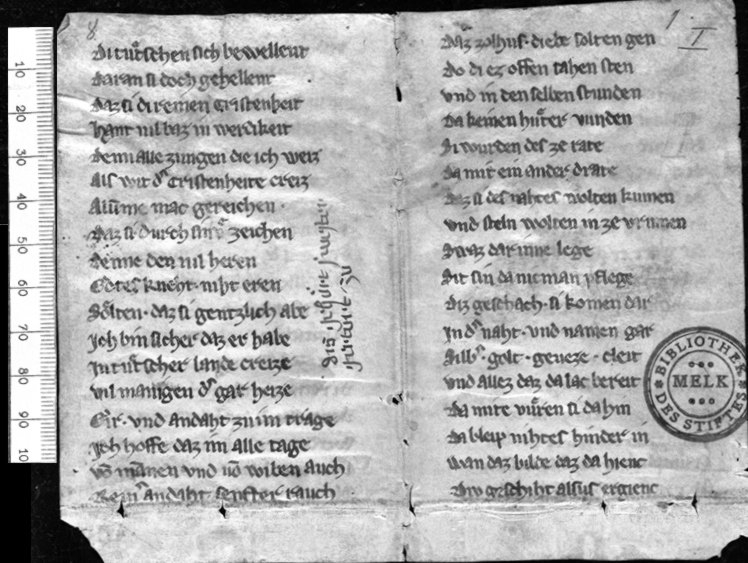 8
Di tůtschen sich bewellent
daran si doch gehellent
daz si di reinen Cristenheit
hant vil baz in werdikeit
denn alle zungen die ich weiz
Als wit der Cristenheite creiz
mac gereichen
daz si durch zeichen
den vil heren
Gotes kneht niht eren
Sölten daz si gentzlich abe
Ich bin sicher daz er habe
In tůtscher lande creize
vil manigen der gar heize
Eir vnd Andaht zu im trage
Ich hoffe daz im alle tage
von mannen vnd von wiben auch
andaht senfter rauch
1
I
Daz zolhus diebe solten gen
do di ez offen sahen sten
vnd in den selben stunden
da keinen hůter vunden
Si wurden des ze rate
da mit ein ander drate
daz si des nahtes wolten kumen
vnd steln wolten in ze vrumen
Swaz dar inne lege
Sit sin da nieman pflege
diz geschach si komen dar
In der naht vnd namen gar
Silber golt cleit
vnd allez daz da lac bereit
da mite vůren si da hin
da bleip nihtes hinder in
wan daz bilde daz da hienc
diu geschiht alsus ergienc
BIBLIOTHEK
DES STIFTES
MELK
10
20
30
40
50
60
70
80
90
10